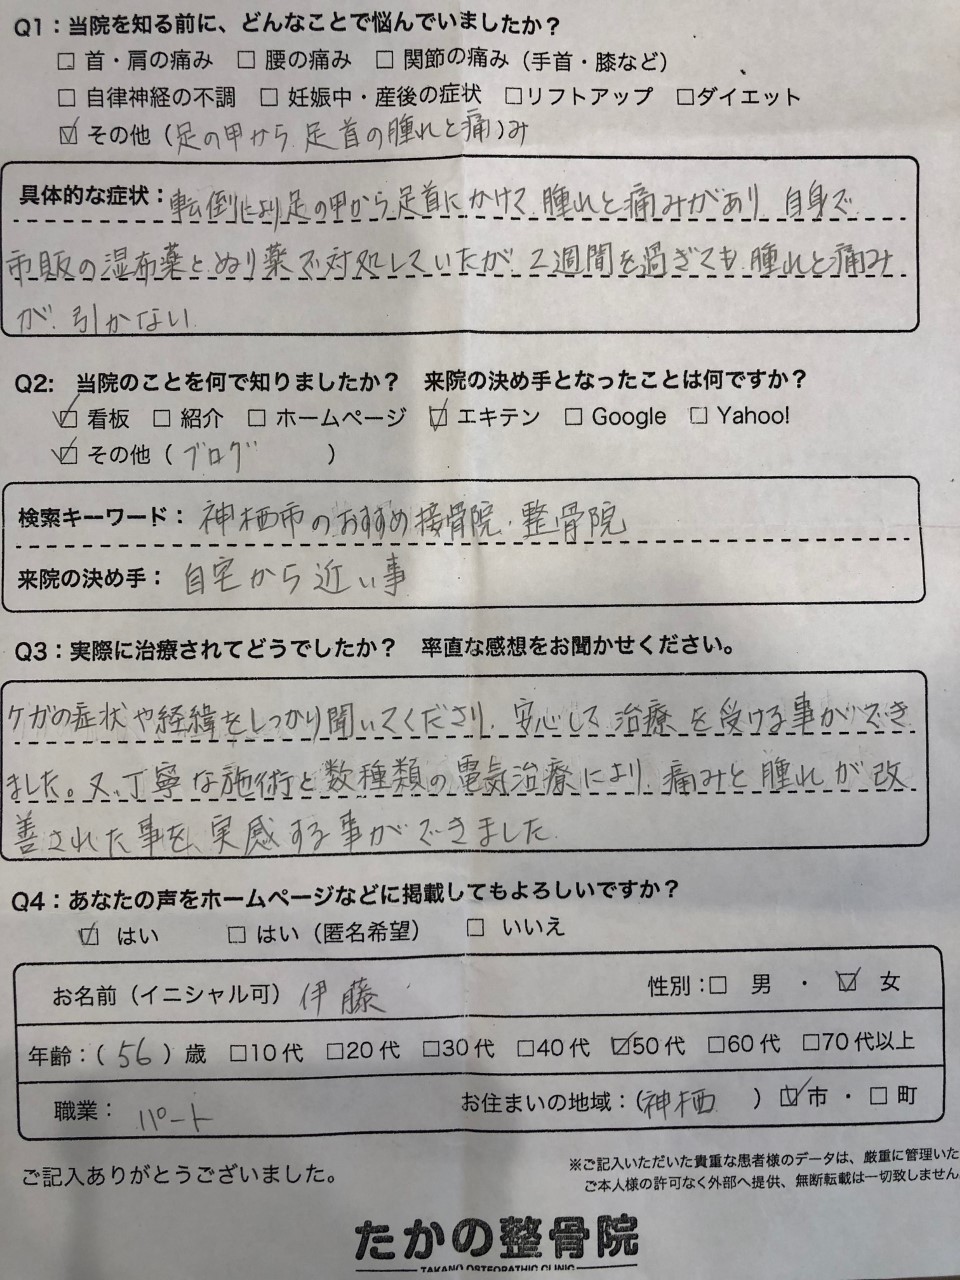 Q1：当院を知る前に、どんなことで悩んでいましたか？
□ 首・肩の痛み □ 腰の痛み □ 関節の痛み（手首・膝など）
□ 自律神経の不調 □ 妊娠中・産後の症状 □リフトアップ □ダイエット
☑ その他（足の甲から 足首の腫れと痛）み
具体的な症状：転倒により足の甲から足首にかけて、腫れと痛みがあり 自身で
市販の湿布薬とぬり薬で対処していたが、2週間を過ぎても、腫れと痛み
が、引かない
Q2: 当院のことを何で知りましたか？ 来院の決め手となったことは何ですか？
☑ 看板 □ 紹介 □ ホームページ ☑ エキテン □ Google □ Yahoo!
☑ その他（ ブログ ）
検索キーワード： 神栖市のおすすめ接骨院、整骨院
来院の決め手： 自宅から近い事
Q3：実際に治療されてどうでしたか？ 率直な感想をお聞かせください。
ケガの症状や経緯をしっかり聞いてくださり、安心して治療を受ける事ができ
ました。又、丁寧な施術と数種類の電気治療により、痛みと腫れが改
善された事を、実感する事ができました。
Q4：あなたの声をホームページなどに掲載してもよろしいですか？
☑ はい □ はい（匿名希望） □ いいえ
お名前（イニシャル可） 伊藤 性別：□ 男 ・ ☑ 女
年齢：（ 56 ）歳 □10代 □20代 □30代 □40代 ☑50代 □60代 □70代以上
職業： パート お住まいの地域：（神栖 ）☑市・□町
ご記入ありがとうございました。
※ご記入いただいた貴重な患者様のデータは、厳重に管理いた
ご本人様の許可なく外部へ提供、無断転載は一切致しません
たかの整骨院
TAKANO OSTEOPATHIC CLINIC